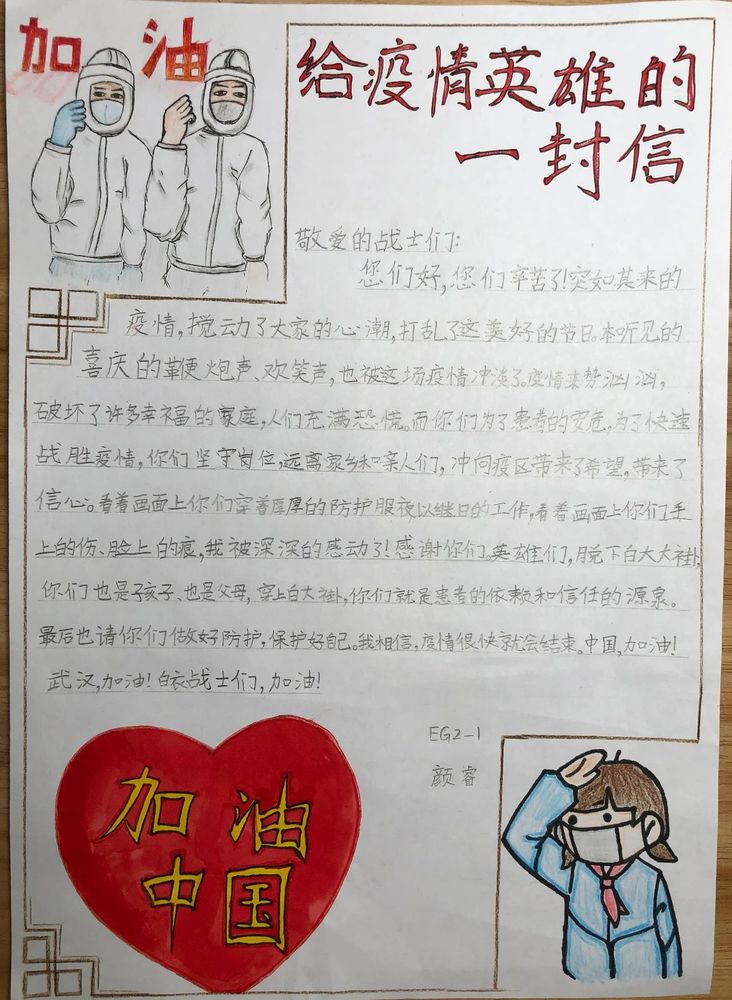 加油
给疫情英雄的
一封信
敬爱的战士们:
您们好,您们辛苦了!突如其来的
疫情,搅动了大家的心潮,打乱了这美好的节日。本听见的
喜庆的鞭炮声、欢笑声,也被这场疫情冲淡了。疫情来势汹汹,
破坏了许多幸福的家庭,人们充满恐慌。而你们为了患者的安危,为了快速
战胜疫情,你们坚守岗位,远离家乡和亲人们,冲向疫区带来了希望,带来了
信心。看着画面上你们穿着厚厚的防护服夜以继日的工作,看着画面上你们手
上的伤、脸上的痕,我被深深的感动了!感谢你们。英雄们,脱下白大大褂,
你们也是孩子、也是父母,穿上白大褂,你们就是患者的依赖和信任的源泉。
最后也请你们做好防护,保护好自己。我相信,疫情很快就会结束。中国,加油!
武汉,加油!白衣战士们,加油!
EG2-1
颜睿
加油
中国